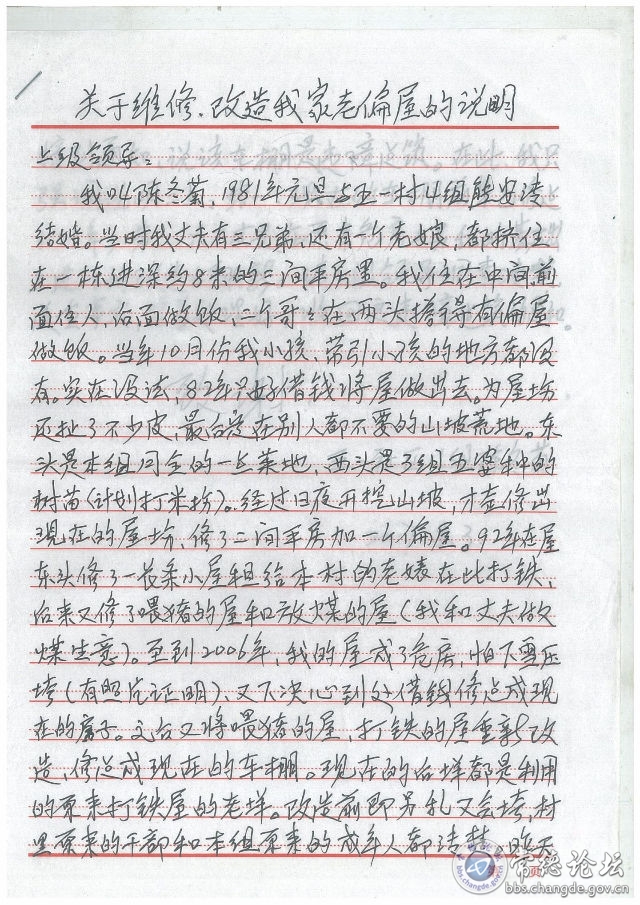 关于维修.改造我家老偏屋的说明
上级领导:
我叫陈冬菊,1981年元旦与五一村4组熊安涛
结婚。当时我丈夫有三兄弟,还有一个老娘,都挤住
在一栋进深约8米的三间平房里。我住在中间前
面住人,后面做饭,二个哥哥在两头搭得有偏屋
做饭。当年10月份我小孩,带引小孩的地方都没
有。实在没法,82年只好借钱将屋做出去。为屋场
还扯了不少皮,最后是在别人都不要的山坡荒地。东
头是本组同全的一丘菜地,西头是3组五婆种的
树苗(计划打米场)。经过日夜开挖山坡,才查修出
现在的屋场,修了二间平房加一个偏屋。92年在屋
东头修了一长条小屋租给本村的老婊在此打铁,
后来又修了喂猪的屋和放煤的屋(我和丈夫做
煤生意)。至到2006年,我的屋成了危房,怕下雪压
垮(有照片证明),又下决心到处借钱修总成现
在的房子。之后又将喂猪的屋,打铁的屋重新改
造,修总成现在的车棚。现在的后垟都是利用
的原来打铁屋的老垟。改造前即另扎又会垮,村
里原来的干部和本组原来的成年人都清楚。昨天
页
常德论坛
bbs.changde.gov.cn